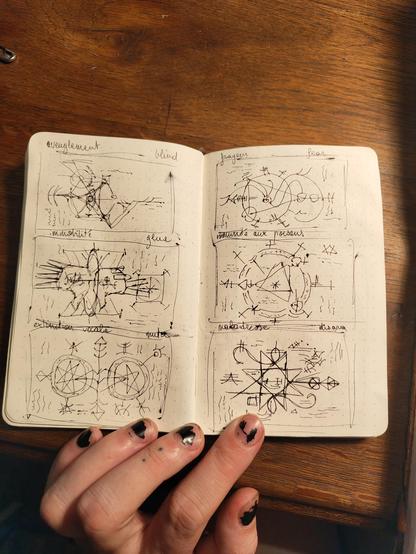 aveuglement blind
immobilité glue
extinction vocale mute
frayeur fear
immunité aux poisons
maladresse